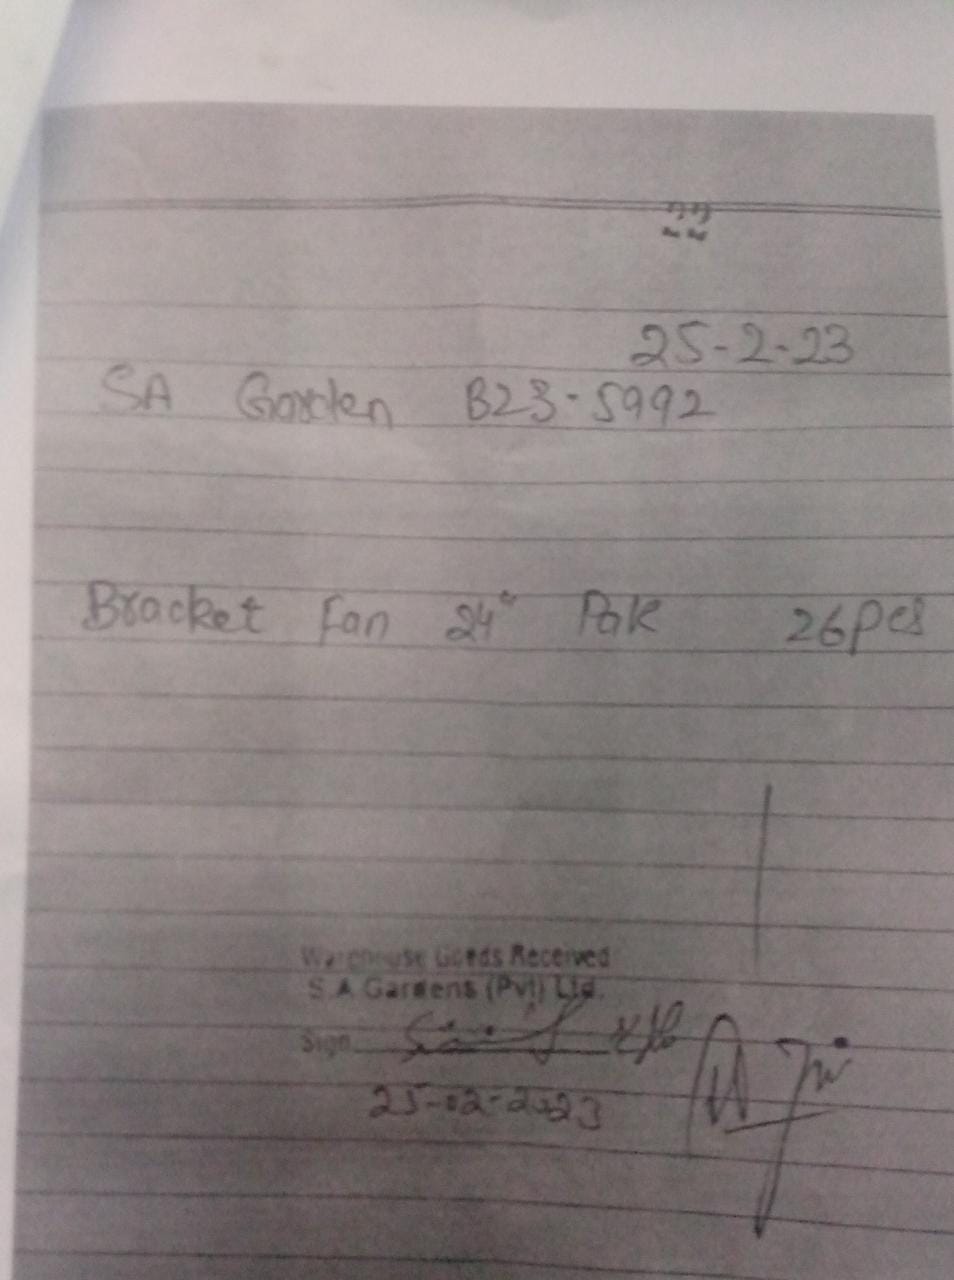 25-2-23
SA Garden B23-5992
Bracket Fan 24" Pak 26pcs
Warehouse Goods Received
S.A Gardens (Pvt) Ltd.
Sign
25-02-2023